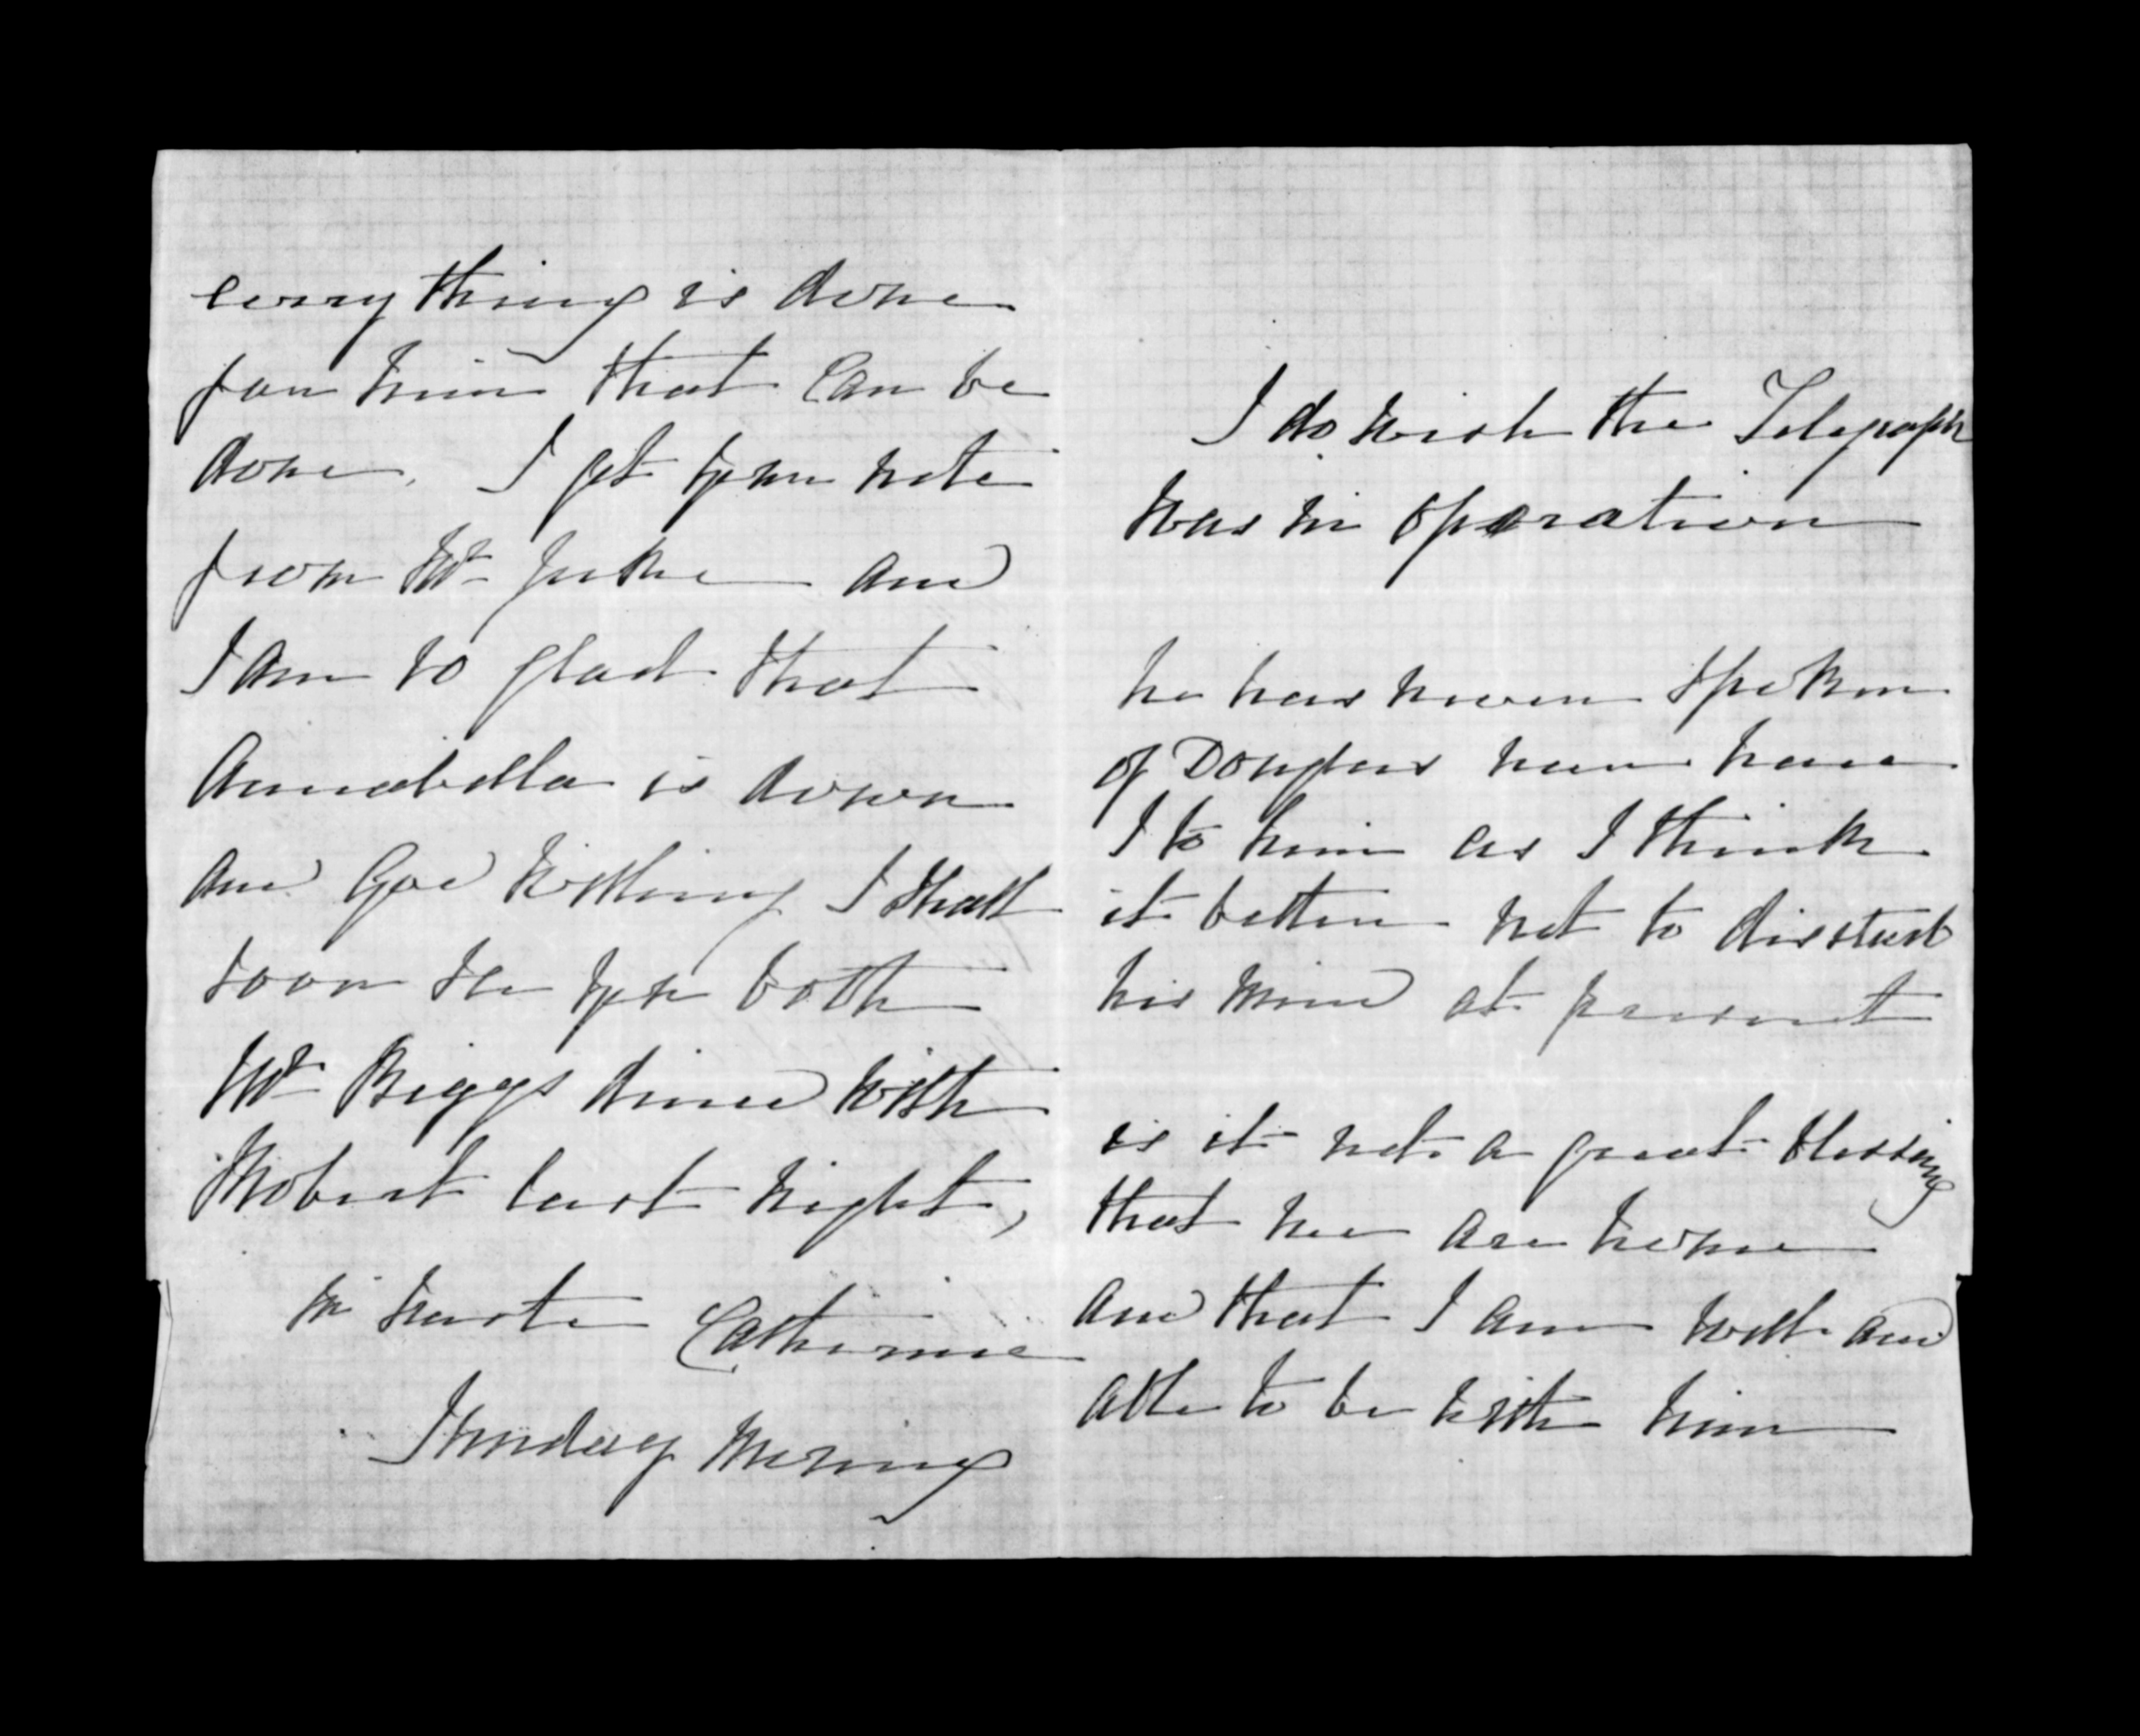 every thing is done
for him that can be
done. I got your note
from Mr and
I am so glad that
Annabella is down
and God willing I shall
soon see you both
Mr Biggs dined with
Robert last night,
in haste Catherine
Thursday Morning
I do wish the Telegraph
was in operation
he has never spoken
of Douglas nun have
I to him as I think
it better not to disturb
his mind at present
is it not a great blessing
that we are home
and that I am well and
able to be with him